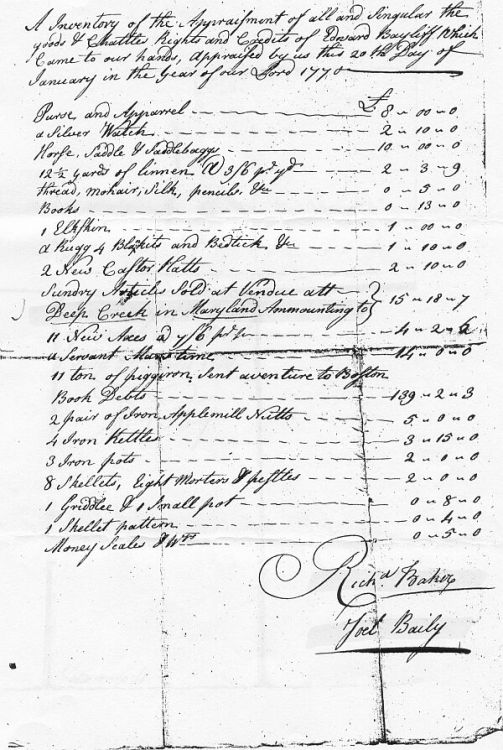 A Inventory of the Appraisment of all and Singular the
goods & Chattles Rights and Credits of Edward Bayliff Which
Came to our hands, appraised by us this 20th Day of
January in the Year of our Lord 1770
Purse and Apparrel £8 " 00 " 0
a Silver Watch 2 " 10 " 0
Horse, Saddle & Saddlebaggs 10 " 00 " 0
12½ yards of linnen @ 3/6 pr yd 2 " 3 " 9
thread, mohair, Silk, pencils, &c 0 " 5 " 0
Books 0 " 13 " 0
1 Elkskin 1 " 00 " 0
a Rugg 4 Blankits and Bedtick &c 1 " 10 " 0
2 New Castor Hatts 2 " 10 " 0
Sundry Articles Sold at Vendue att
Deep Creek in Maryland Ammounting to } 15 " 18 " 7
11 New Axes @ 7/6 pr 4 " 2 " 6
a Servant Mans time 14 " 0 " 0
11 ton of piggiron Sent aventure to Boston
Book Debts 139 " 2 " 3
2 pair of Iron Applemill Nutts 5 " 0 " 0
4 Iron Kettles 3 " 15 " 0
3 Iron pots 2 " 0 " 0
8 Skellets, Eight Morters & pestles 2 " 0 " 0
1 Griddlee & 1 Small pot 0 " 8 " 0
1 Skellet pattern 0 " 4 " 0
Money Scales & Wts 0 " 5 " 0
Richd Baker
Joel Baily